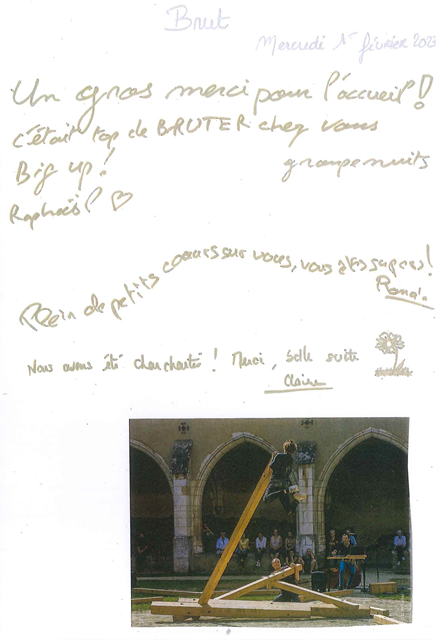 Brut
Mercredi 1er février 2023
Un gros merci pour l'accueil !
c'était top de BRUTER chez vous
Big up !
groupe nuits
Raphaël ♡
Plein de petits coeurs sur vous, vous êtes supers !
Nous avons été chouchoutés ! Merci, belle suite
Claire